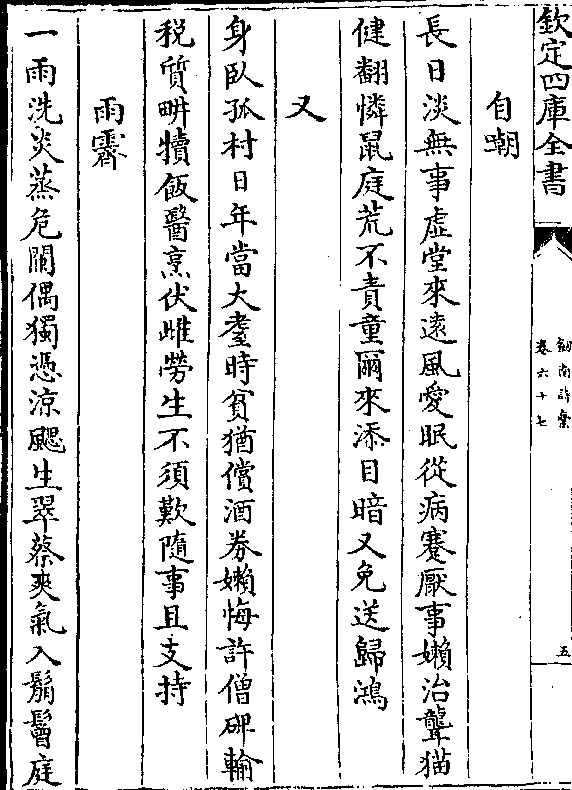 欽定四庫全書
劒南詩藁
卷六十七
五
自嘲
長日淡無事虚堂來遠風愛眠從病蹇厭事嬾治聾猫
健翻憐鼠庭荒不責童爾來添目暗又免送歸鴻
又
身臥孤村日年當大耋時貧猶償酒券嬾悔許僧碑輸
税質畊犢飯醫烹伏雌勞生不須歎隨事且支持
雨霽
一雨洗炎蒸危闌偶獨憑涼颸生翠蔡爽氣入鬅鬙庭